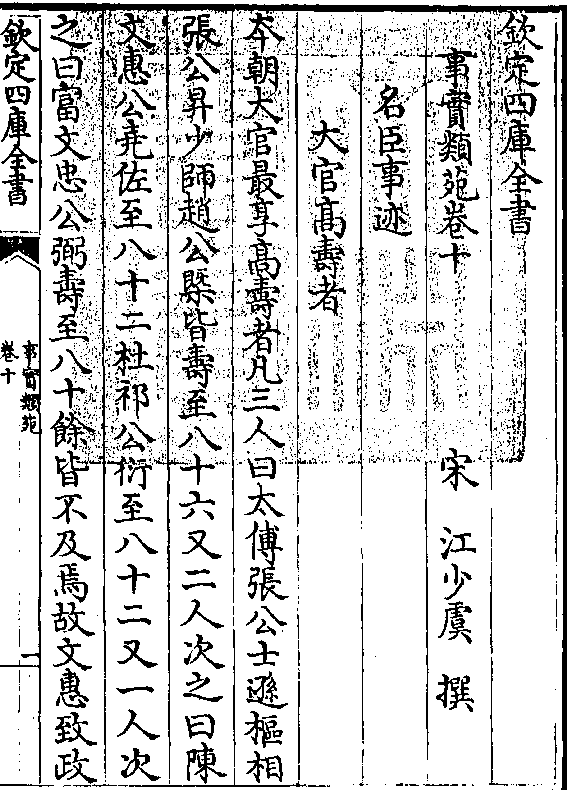 欽定四庫全書
事實類苑卷十
宋 江少虞 撰
名臣事迹
大官高壽者
本朝大官最享高壽者凡三人曰太傅張公士遜樞相
張公昇少師趙公槩皆壽至八十六又二人次之曰陳
文惠公堯佐至八十二杜祁公衍至八十二又一人次
之曰富文忠公弼壽至八十餘皆不及焉故文惠致政
欽定四庫全書
事實類苑
卷十
一